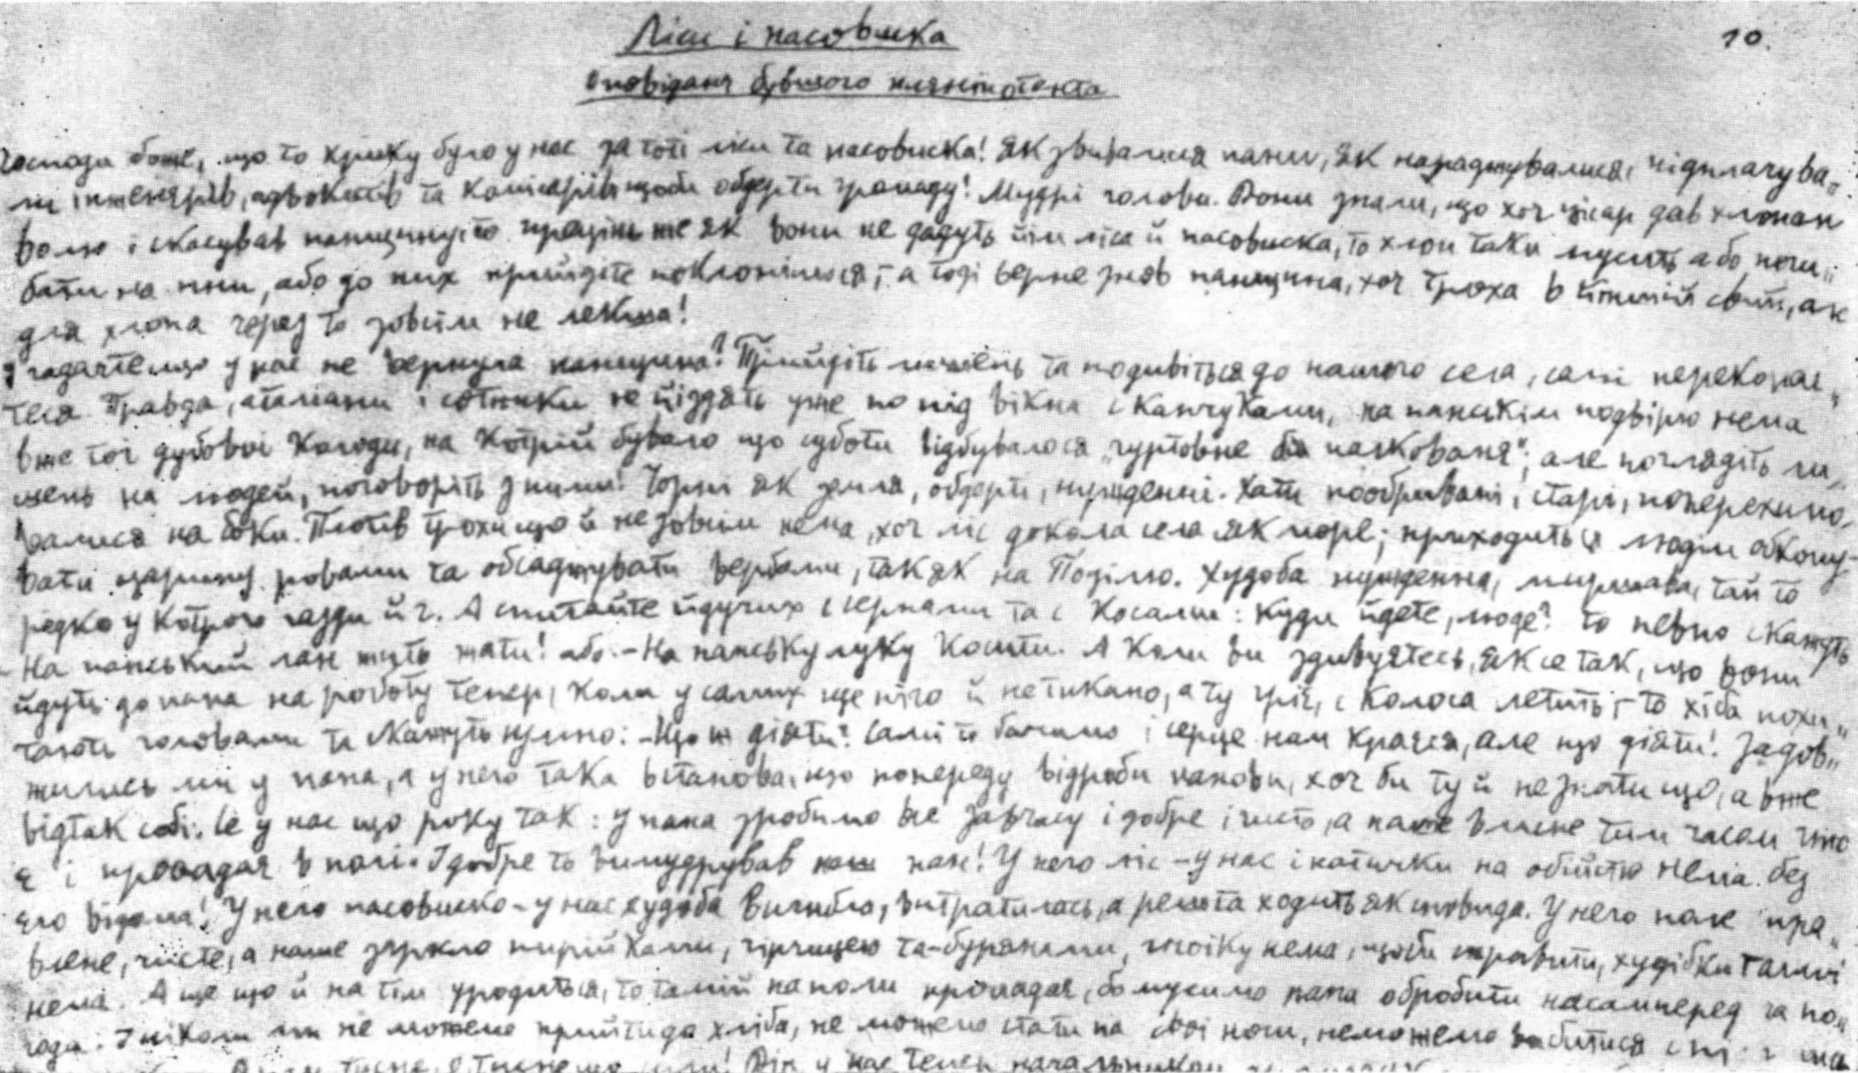 Ліси і пасовиска
10.
Оповіданє бувшого плєніпотента
Господи боже, що то крику було у нас за тоті ліси та пасовиска! Як звивалися пани, як нараджувалися, підплачува„
ли інженярів, адвокатів та комісарів щоби обдерти громаду! Мудрі голови. Вони знали, що хоч цісар дав хлопам
волю і скасував панщину, то прецінь же як вони не дадуть їм ліса й пасовиска, то хлоп таки мусить або
бати на пни, або до них прийдете поклонитися, – а тоді верне знов панщина, хоч троха в іншій свиті, але
для хлопа через то зовсім не лекша!
І гадаєте що у нас не вернула панщина? Прийдіть лишень та подивіться до нашого села, самі переконає„
теся. Правда, атамани і сотники не їздять уже по під вікна с канчуками, на панськім подвірю нема
вже тої дубової колоди, на котрій бувало що суботи відбувалося „гуртовне палкованя"; але поглядіть ли„
шень на людей, поговоріть з ними! Чорні як земля, обдерті, нужденні. Хати пообривані, старі, поперехиLю„
валися на боки. Плотів трохи що й не зовсім нема, хоч ліс докола села як море; приходиться людім обкопу-
вати царину ровами та обсаджувати вербами, так як на Поділю. Худоба нужденна, миршава, тай то
редко у котрого газди й є. А спитайте йдучих с серпами та с косами: Куди йдете, люде? то певно скажуть
– На панський лан жито жати! або – На панську луку косити. А коли ви здивуєтесь, як се так, що вони
йдуть до пана на роботу тепер, коли у самих ще нічо й не тикано, а ту гріє, с колоса летить, – то хіба похи„
тають головами та скажуть нужно: – Що ж діяти? Самі то бачимо і серце нам краєся, але що діяти! Задов„
жились ми у пана, а у него така встанова, що попереду відроби панови, хоч би ту й не знати що, а вже
відтак собі. Се у нас що року так: у пана зробимо все завчасу і добре і чисто, а наше власне тим часом гине
є і пропадає в полі. І добре то вимудрував пан! У него ліс – у нас і патички на обійстю нема без
єго відома! У него пасовиско – у нас худоба вигибла, витратилась, а решта ходить як сновида. У него поле пра„
влене, чисте, а наше заросло пирійками, гірчицею та бурянами, гноїку нема, щоби справити, худібки тяглої
нема. А ще що й на тім уродиться, то та мій на поли пропадає, бо мусимо пана обробити насамперед за по„
годи. І ніколи ми не можемо прийти до хліба, не можемо стати на свої ноги, не можемо вибитися